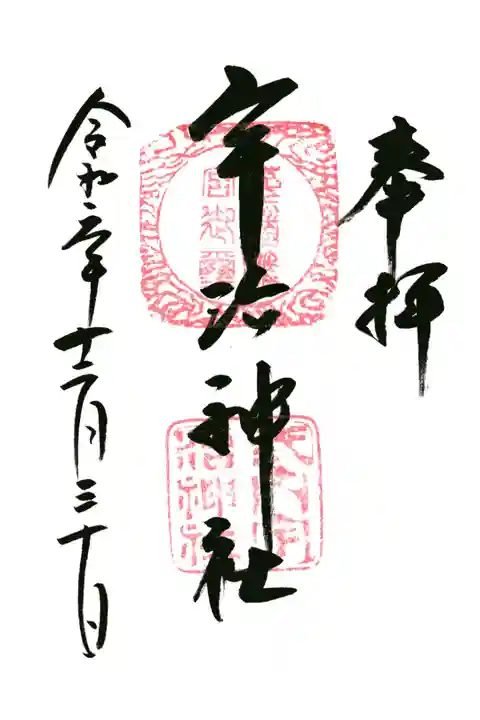 奉拝
宇治神社
令和二年十二月三十日